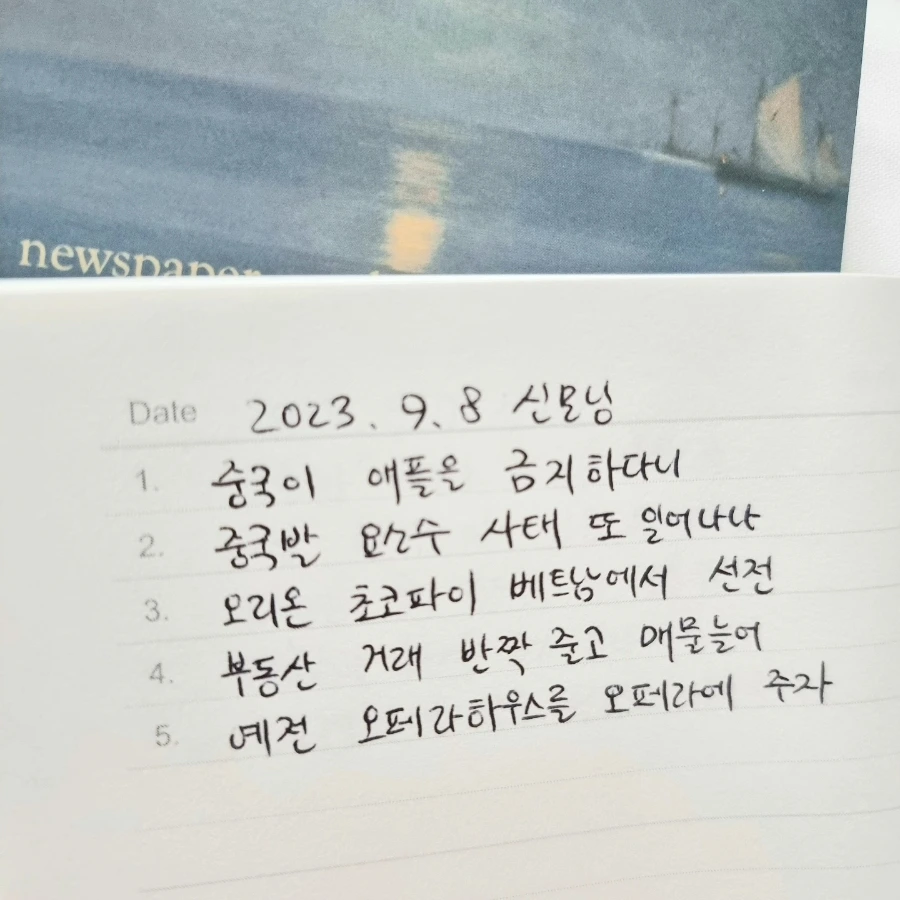 newspaper
Date 2023. 9. 8 신모닝
1. 중국이 애플을 금지하다니
2. 중국발 요소수 사태 또 일어나나
3. 오리온 초코파이 베트남에서 선전
4. 부동산 거래 반짝 줄고 매물늘어
5. 예전 오페라하우스를 오페라에 주자